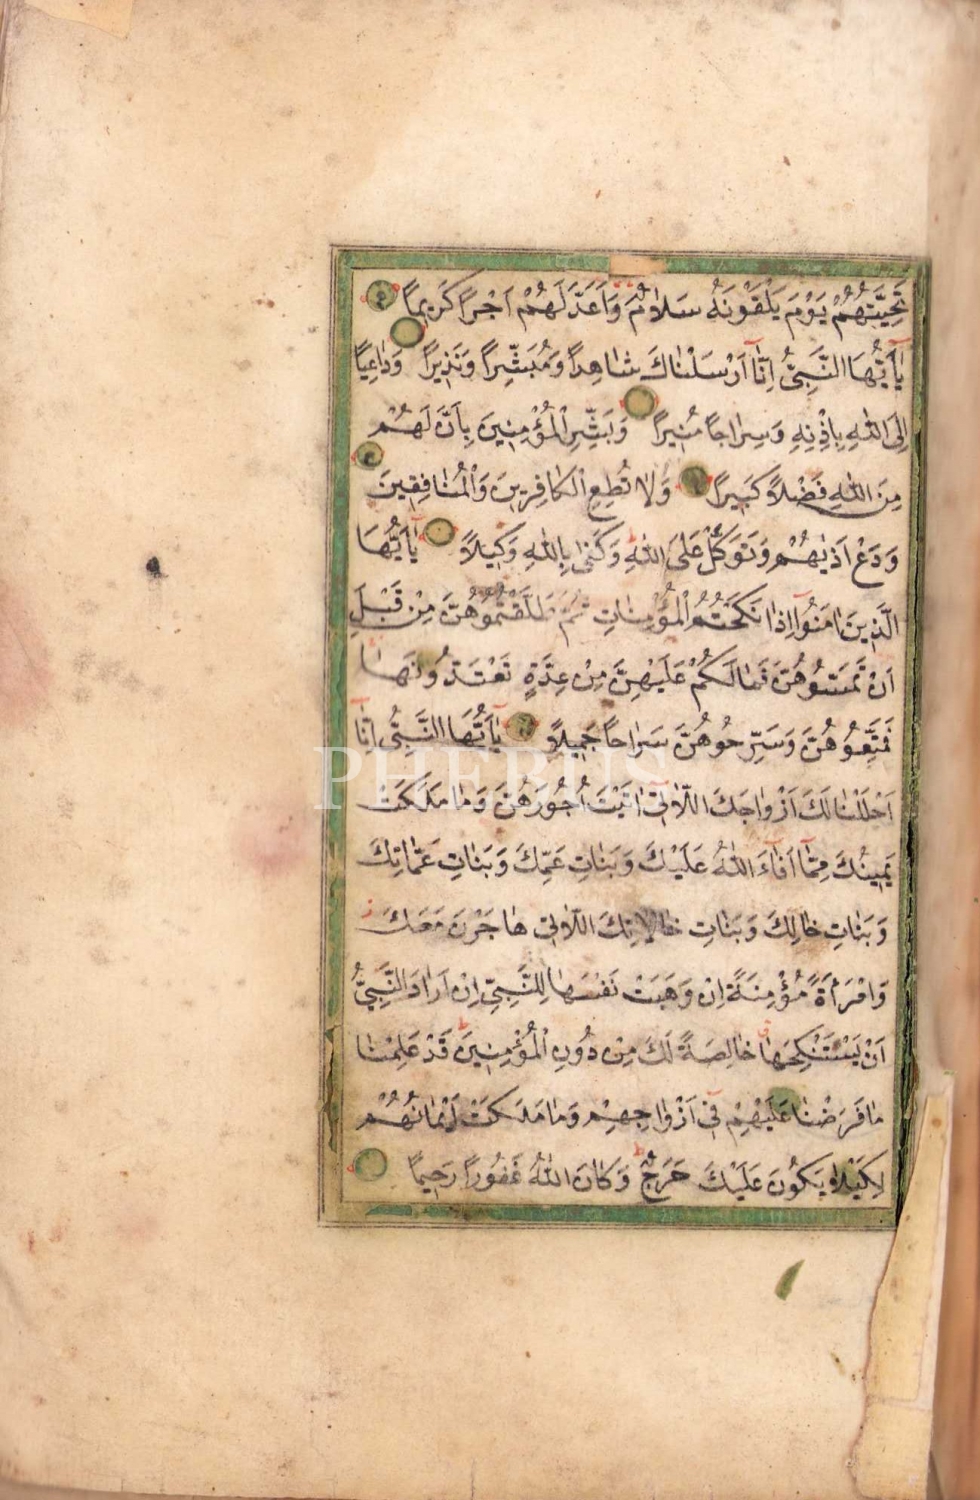 تَحِيَّتُهُمْ يَوْمَ يَلْقَوْنَهُ سَلَامٌ وَاَعَدَّ لَهُمْ اَجْرًا كَرِيمًا
يَاأَيُّهَا النَّبِيُّ اِنَّا اَرْسَلْنَاكَ شَاهِدًا وَمُبَشِّرًا وَنَذِيرًا وَدَاعِيًا
اِلَى اللهِ بِاِذْنِهِ وَسِرَاجًا مُنِيرًا وَبَشِّرِ الْمُؤْمِنِينَ بِاَنَّ لَهُمْ
مِنَ اللهِ فَضْلًا كَبِيرًا وَلَا تُطِعِ الْكَافِرِينَ وَالْمُنَافِقِينَ
وَدَعْ اَذٰيهُمْ وَتَوَكَّلْ عَلَى اللهِ وَكَفٰى بِاللهِ وَكِيلًا يَاأَيُّهَا
الَّذِينَ اٰمَنُوا اِذَا نَكَحْتُمُ الْمُؤْمِنَاتِ ثُمَّ طَلَّقْتُمُوهُنَّ مِنْ قَبْلِ
اَنْ تَمَسُّوهُنَّ فَمَا لَكُمْ عَلَيْهِنَّ مِنْ عِدَّةٍ تَعْتَدُّونَهَا
فَمَتِّعُوهُنَّ وَسَرِّحُوهُنَّ سَرَاحًا جَمِيلًا يَاأَيُّهَا النَّبِيُّ اِنَّا
اَحْلَلْنَا لَكَ اَزْوَاجَكَ اللَّاتِي اٰتَيْتَ اُجُورَهُنَّ وَمَا مَلَكَتْ
يَمِينُكَ مِمَّا اَفَاءَ اللهُ عَلَيْكَ وَبَنَاتِ عَمِّكَ وَبَنَاتِ عَمَّاتِكَ
وَبَنَاتِ خَالِكَ وَبَنَاتِ خَالَاتِكَ اللَّاتِي هَاجَرْنَ مَعَكَ
وَامْرَأَةً مُؤْمِنَةً اِنْ وَهَبَتْ نَفْسَهَا لِلنَّبِيِّ اِنْ اَرَادَ النَّبِيُّ
اَنْ يَسْتَنْكِحَهَا خَالِصَةً لَكَ مِنْ دُونِ الْمُؤْمِنِينَ قَدْ عَلِمْنَا
مَا فَرَضْنَا عَلَيْهِمْ فِي اَزْوَاجِهِمْ وَمَا مَلَكَتْ اَيْمَانُهُمْ
لِكَيْلَا يَكُونَ عَلَيْكَ حَرَجٌ وَكَانَ اللهُ غَفُورًا رَحِيمًا
PHEBUS